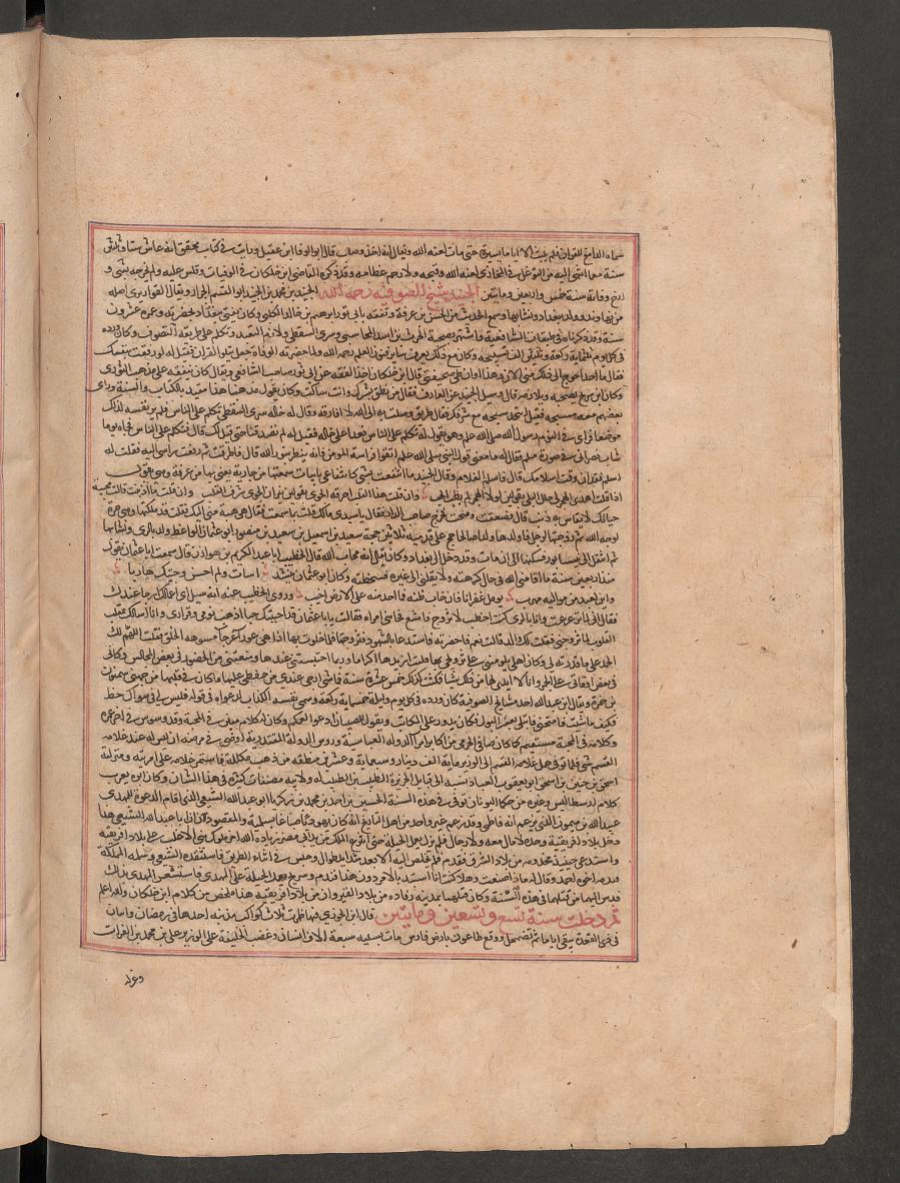 سماه الدامغ للقرآن فلم يلبث الا اياما يسيرة حتى مات لعنه الله ويقال انه اخذ وصلب قال ابو الوفا ابن عقيل ورايت في كتاب محقق انه عاش ستا وثلثين
سنة مع ما انتهى اليه من التوغل في المخازي لعنه الله وقبحه ولا رحم عظامه وقد ذكره القاضي ابن خلكان في الوفيات وقلس عليه ولم يجرحه بشي و
ارخ وفاته سنة خمس واربعين ومايتين الجنيد شيخ الصوفية رحمه الله الجنيد بن محمد بن الجنيد ابو القسم الخزاز ويقال القواريري اصله
من نهاوند وولد ببغداد ونشا بها وسمع الحديث من الحسن بن عرفة وتفقه بابي ثور ابرهيم بن خالد الكلبي وكان يفتي ببغداد بحضرته وعمره عشرون
سنة وقد ذكرناه في طبقات الشافعية واشتهر بصحبة الحرث بن اسد المحاسبي وسري السقطي ولازم التعبد وتكلم على طريقة التصوف وكان ورده
في كل يوم ثلثماية ركعة وثلثين الف تسبيحة وكان مع ذلك يعرف ساير فنون العلم رحمه الله ولما حضرته الوفاة جعل يتلو القران فقيل له لو رفقت بنفسك
فقال ما احد احوج الى ذلك مني الان وهذا اوان طي صحيفتي قال ابن خلكان اخذ الفقه عن ابي ثور صاحب الشافعي ويقال كان يتفقه على مذهب الثوري
وكان ابن سريج يصحبه ويلازمه قال وسيل الجنيد عن العارف فقال من نطق بسرك وانت ساكت وكان يقول مذهبنا هذا مقيد بالكتاب والسنة وراى
بعضهم معه مسبحة فقيل له تتخذ مسبحة مع شرفك فقال طريق وصلت به الى الله لا افارقه وقال له خاله سري السقطي تكلم على الناس فلم ير نفسه لذلك
موضعا فراى في النوم رسول الله صلى الله عليه وسلم وهو يقول له تكلم على الناس فغدا على خاله فقيل له لم تصدقنا حتى قيل لك قال فتكلم على الناس فجاه يوما
شاب نصراني في صورة مسلم فقال له ما معنى قول النبي صلى الله عليه اتقوا فراسة المومن فانه ينظر بنور الله قال فاطرقت ثم رفعت راسي اليه فقلت له
اسلم فقد ان وقت اسلامك قال فاسلم الغلام وقال الجنيد ما انتفعت بشي كانتفاعي بابيات سمعتها من جارية يغني بها من غرفة وهي تقول
اذا قلت اهدى الهجر لي حلل البلى تقولين لولا الهجر لم يطب الحب وان قلت هذا القلب احرقه الهوى تقولين نيران الهوى شرف القلب وان قلت ما اذنبت قالت مجيبة
حياتك ذنب لا يقاس به ذنب قال فصعقت وصحت فخرج صاحب الدار فقال يا سيدي مالك قلت مما سمعت فقال هي هبة مني اليك فقلت قد قبلتها وهي حرة
لوجه الله ثم زوجتها لرجل فاولدها ولدا صالحا حج على قدميه ثلاثين حجة سعيد بن اسمعيل بن سعيد بن منصور ابو عثمان الواعظ ولد بالري ونشا بها
ثم انتقل الى نيسابور فسكنها الى ان مات وقد دخل بغداد وكان يقال انه مجاب الدعوة قال الخطيب ابا عبد الكريم بن هوازن قال سمعت ابا عثمان يقول
منذ اربعين سنة ما اقامني الله في حال كرهته ولا نقلني الى غيره فسخطته وكان ابو عثمان ينشد اسات ولم احسن وجيتك هاربا
واين لعبد من مواليه مهرب يومل غفرانا فان خاب ظنه فما احد منه على الارض اخيب وروى الخطيب عنه انه سيل اي اعمالك ارجا عندك
فقال اني لما ترعرعت وانا بالري كنت اخطب لاتزوج فامتنع فجاتني امراة فقالت يا ابا عثمان قد احببتك حبا اذهب نومي وقراري وانا اسالك بمقلب
القلوب لما تزوجتني فقلت لك والد قالت نعم فاحضرته فاستدعا بالشهود فتزوجتها فلما خلوت بها اذا هي عوراء عرجا مشوهة الخلق فقلت اللهم لك
الحمد على ما قدرته لي وكان اهل بيتي يلومونني على تزوجي بها فكنت ازيدها اكراما وربما احتبستني عندها ومنعتني من الحضور الى بعض المجالس وكاني
في بعض اوقاتي على الجمر وانا لا ابدي لها من ذلك شيا فمكثت كذلك خمس عشرة سنة فما شي ارجى عندي من حفظي عليها ما كان في قلبها من جهتي سمنون
بن حمزة ويقال ابن عبد الله احد مشايخ الصوفية كان ورده في كل يوم وليلة خمسماية ركعة وسمى نفسه الكذاب لدعواه في قوله فليس لي في سواك حظ
فكيف ما شيت فامتحني فابتلي بعسر البول فكان يدور على المكاتب ويقول للصبيان ادعوا لعمكم وكان له كلام متين في المحبة وقد وسوس في اخر عمره
وكلامه في المحبة مستقيم كما كان صافي الحرمي من اكابر امراء الدولة العباسية وروس الدولة المقتدرية اوصى في مرضه ان ليس له عند غلامه
القسم شي فلما توفي حمل غلامه القسم الى الوزير ماية الف دينار وسبعماية وعشرين منطقة من ذهب مكللة فاستمر غلامه على امريته ومنزلته
اسحق بن حنين بن اسحق ابو يعقوب العبادي نسبه الى قبايل الجزيرة الطبيب بن الطبيب له ولابيه مصنفات كثيرة في هذا الشان وكان ابوه يعرب
كلام ارسطاليس وغيره من حكما اليونان توفي في هذه السنة الحسين بن احمد بن محمد بن زكريا ابو عبد الله الشيعي الذي اقام الدعوة للمهدي
عبيد الله بن ميمون الذي يزعم انه فاطمي وقد زعم غير واحد من اهل التاريخ انه كان يهوديا صباغا بسلمية والمقصود الان ان ابا عبد الله الشيعي هذا
دخل بلاد افريقية وحده لا مال معه ولا رجال فلم يزل يعمل الحيلة حتى انتزع الملك من يد ابي مضر زيادة الله اخر ملوك بني الاغلب على بلاد افريقية
واستدعى حينيذ مخدومه من بلاد الشرق فقدم فلم يخلص اليه الا بعد شدايد طوال وحبس في اثناء الطريق فاستنقذه الشيعي وسلمه المملكة
فندمه اخوه احمد وقال له ماذا صنعت وهلا كنت استبددت بالامر دون هذا فندم وشرع يعمل الحيلة على المهدي فاستشعر المهدي بذلك
فدس اليهما من قتلهما في هذه السنة وكان قتلهما بمدينة رقادة من بلاد القيروان من بلاد افريقية هذا ملخص من كلام ابن خلكان والله اعلم
ثم دخلت سنة تسع وتسعين ومايتين قال ابن الجوزي فيها ظهرت ثلاث كواكب مذنبة احدها في رمضان واثنان
في ذي القعدة تبقى اياما ثم تضمحل ووقع طاعون بارض فارس مات بسببه سبعة الاف انسان وغضب الخليفة على الوزير علي بن محمد بن الفرات
وعزله